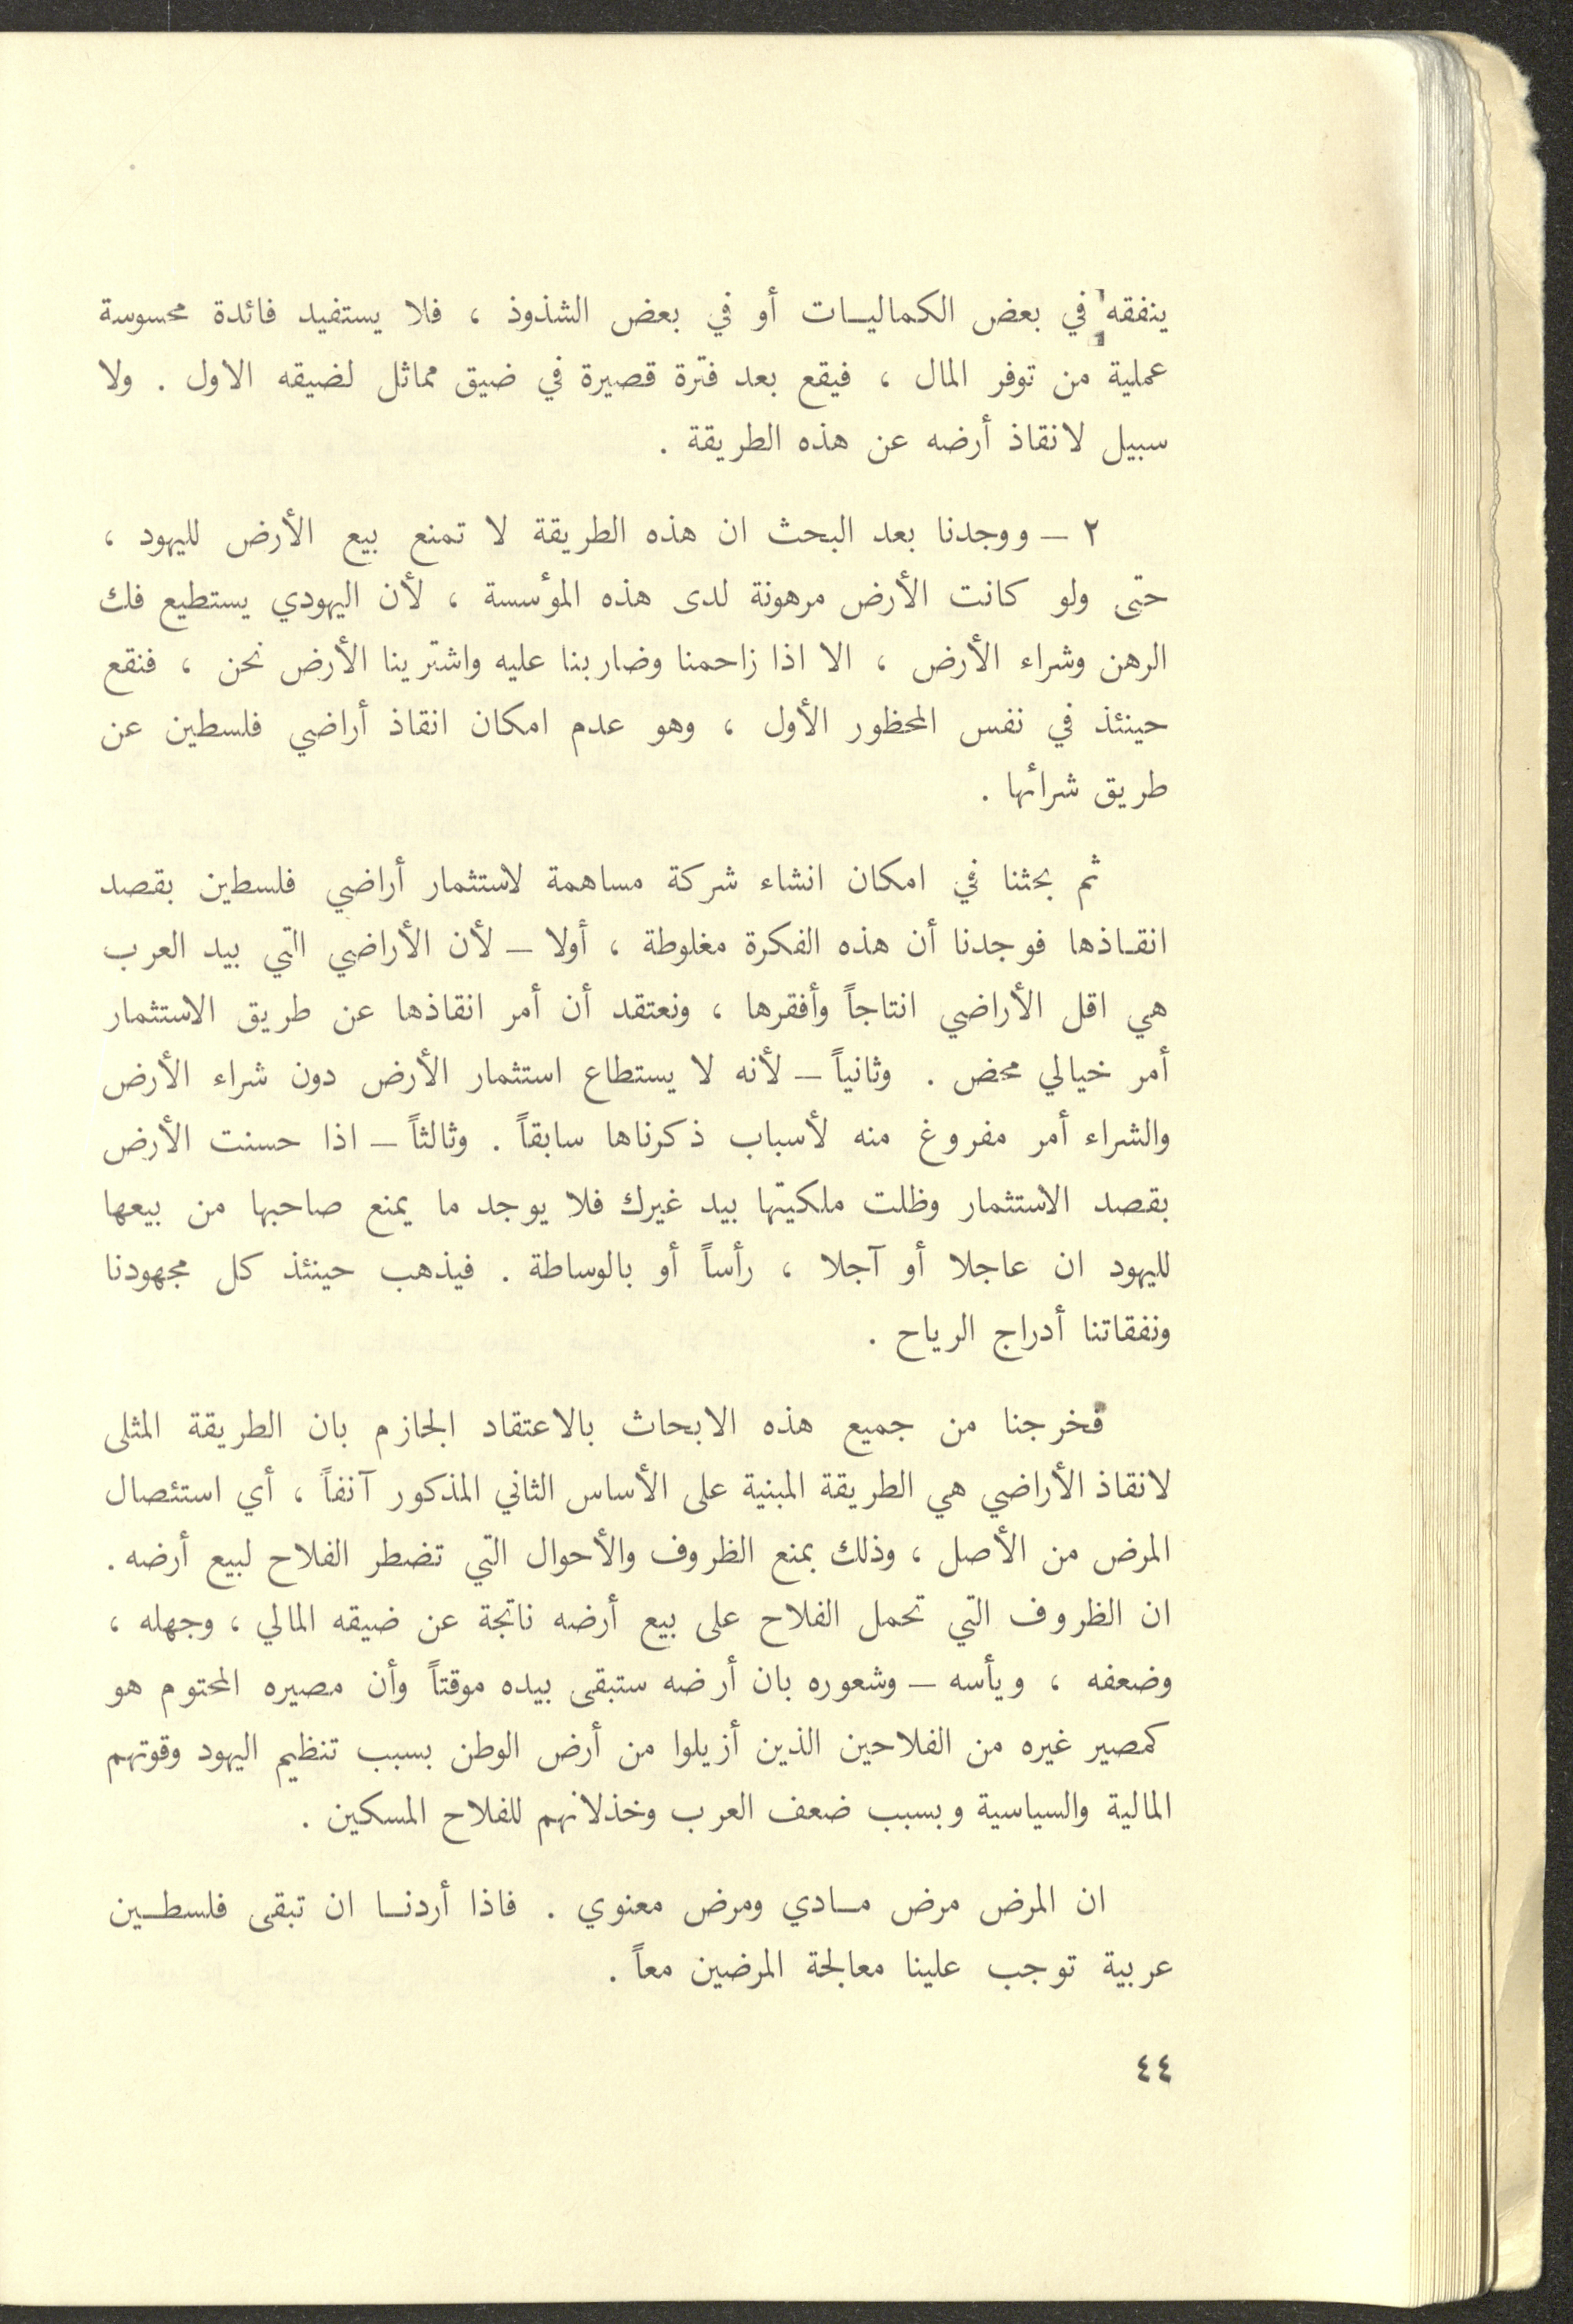 ينفقه في بعض الكماليـات أو في بعض الشذوذ ، فلا يستفيد فائدة محسوسة
عملية من توفر المال ، فيقع بعد فترة قصيرة في ضيق مماثل لضيقه الاول . ولا
سبيل لانقاذ أرضه عن هذه الطريقة .
٢ — ووجدنا بعد البحث ان هذه الطريقة لا تمنع بيع الأرض لليهود ،
حتى ولو كانت الأرض مرهونة لدى هذه المؤسسة ، لأن اليهودي يستطيع فك
الرهن وشراء الأرض ، الا اذا زاحمنا وضاربنا عليه واشترينا الأرض نحن ، فنقع
حينئذ في نفس المحظور الأول ، وهو عدم امكان انقاذ أراضي فلسطين عن
طريق شرائها .
ثم بحثنا في امكان انشاء شركة مساهمة لاستثمار أراضي فلسطين بقصد
انقـاذها فوجدنا أن هذه الفكرة مغلوطة ، أولا — لأن الأراضي التي بيد العرب
هي اقل الأراضي انتاجاً وأفقرها ، ونعتقد أن أمر انقاذها عن طريق الاستثمار
أمر خيالي محض . وثانياً — لأنه لا يستطاع استثمار الأرض دون شراء الأرض
والشراء أمر مفروغ منه لأسباب ذكرناها سابقاً . وثالثاً — اذا حسنت الأرض
بقصد الاستثمار وظلت ملكيتها بيد غيرك فلا يوجد ما يمنع صاحبها من بيعها
لليهود ان عاجلا أو آجلا ، رأساً أو بالوساطة . فيذهب حينئذ كل مجهودنا
ونفقاتنا أدراج الرياح .
فخرجنا من جميع هذه الابحاث بالاعتقاد الجازم بان الطريقة المثلى
لانقاذ الأراضي هي الطريقة المبنية على الأساس الثاني المذكور آنفاً ، أي استئصال
المرض من الأصل ، وذلك بمنع الظروف والأحوال التي تضطر الفلاح لبيع أرضه .
ان الظروف التي تحمل الفلاح على بيع أرضه ناتجة عن ضيقه المالي ، وجهله ،
وضعفه ، ويأسه — وشعوره بان أرضه ستبقى بيده موقتاً وأن مصيره المحتوم هو
كمصير غيره من الفلاحين الذين أزيلوا من أرض الوطن بسبب تنظيم اليهود وقوتهم
المالية والسياسية وبسبب ضعف العرب وخذلانهم للفلاح المسكين .
ان المرض مرض مـادي ومرض معنوي . فاذا أردنـا ان تبقى فلسطـين
عربية توجب علينا معالجة المرضين معاً .
٤٤